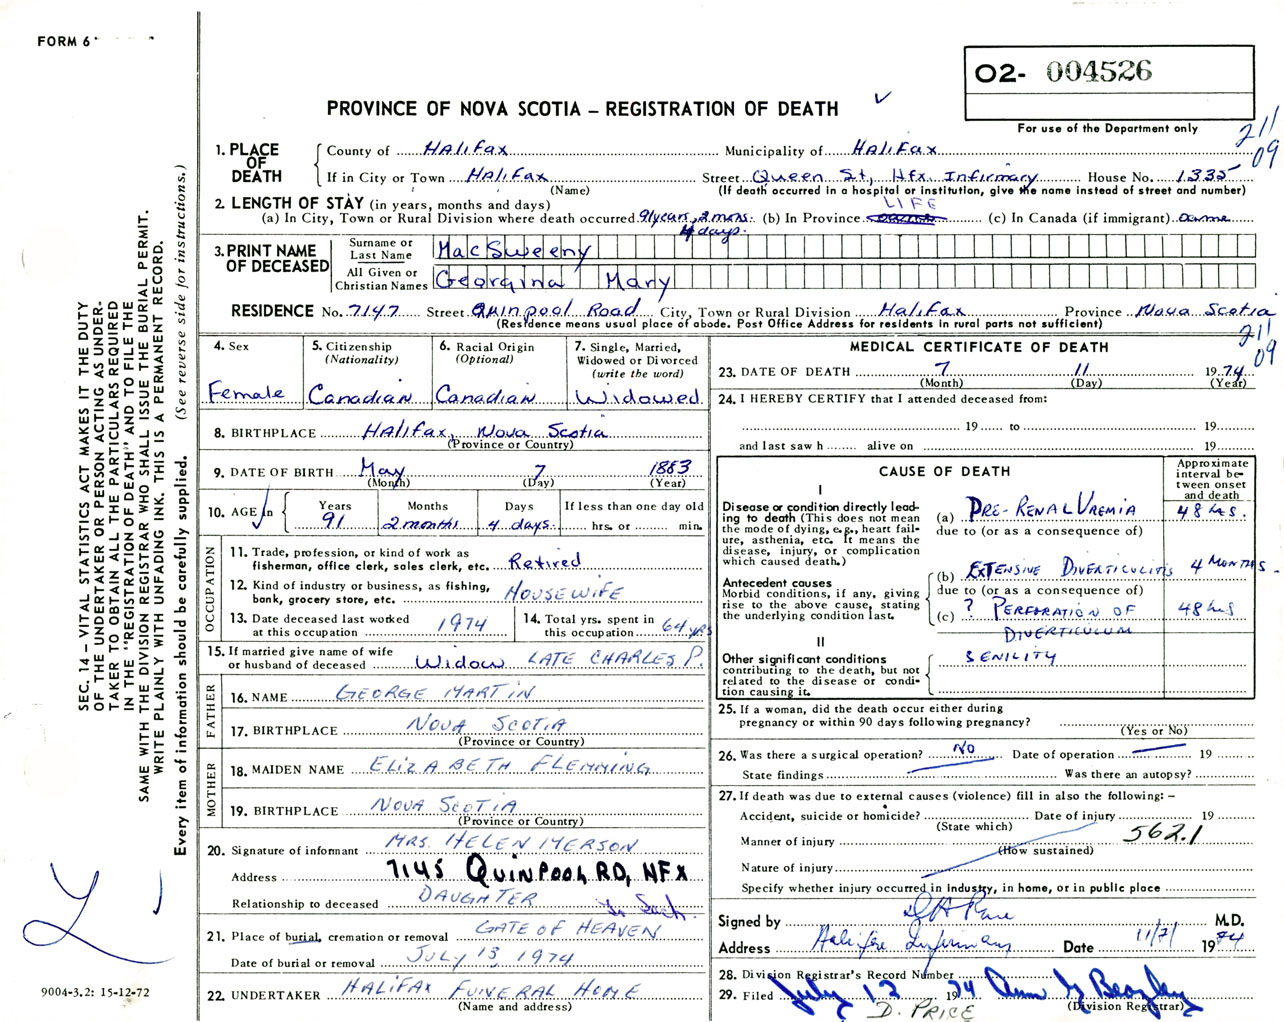 FORM 6
O2- 004526
PROVINCE OF NOVA SCOTIA – REGISTRATION OF DEATH
For use of the Department only
211
09
1. PLACE OF DEATH
County of HALIFAX Municipality of HALIFAX
If in City or Town HALIFAX Street Queen St, Hfx Infirmary House No. 1335
(Name) (If death occurred in a hospital or institution, give the name instead of street and number)
2. LENGTH OF STAY (in years, months and days) LIFE
(a) In City, Town or Rural Division where death occurred 91 years, 2 mons. (b) In Province (c) In Canada (if immigrant) same
4 days.
3. PRINT NAME OF DECEASED
Surname or Last Name MacSweeny
All Given or Christian Names Georgina Mary
RESIDENCE No. 7147 Street Quinpool Road City, Town or Rural Division Halifax Province Nova Scotia
(Residence means usual place of abode. Post Office Address for residents in rural parts not sufficient)
211
09
4. Sex
Female
5. Citizenship
(Nationality)
Canadian
6. Racial Origin
(Optional)
Canadian
7. Single, Married,
Widowed or Divorced
(write the word)
Widowed
8. BIRTHPLACE HALIFAX, Nova Scotia
(Province or Country)
9. DATE OF BIRTH May 7 1883
(Month) (Day) (Year)
10. AGE in
Years Months Days If less than one day old
91 2 months 4 days. hrs. or min.
OCCUPATION
11. Trade, profession, or kind of work as
fisherman, office clerk, sales clerk, etc. Retired
12. Kind of industry or business, as fishing,
bank, grocery store, etc. HOUSEWIFE
13. Date deceased last worked
at this occupation 1974
14. Total yrs. spent in
this occupation 64 yrs
15. If married give name of wife
or husband of deceased Widow LATE CHARLES P.
FATHER
16. NAME GEORGE MARTIN
17. BIRTHPLACE NOVA SCOTIA
(Province or Country)
MOTHER
18. MAIDEN NAME ELIZABETH FLEMMING
19. BIRTHPLACE NOVA SCOTIA
(Province or Country)
20. Signature of informant MRS. HELEN MERSON
Address 7145 QUINPOOL RD, HFX
Relationship to deceased DAUGHTER
21. Place of burial, cremation or removal GATE OF HEAVEN
Date of burial or removal JULY 13, 1974
22. UNDERTAKER HALIFAX FUNERAL HOME
(Name and address)
MEDICAL CERTIFICATE OF DEATH
23. DATE OF DEATH 7 11 1974
(Month) (Day) (Year)
24. I HEREBY CERTIFY that I attended deceased from:
19 to 19
and last saw h alive on 19
CAUSE OF DEATH
Approximate interval between onset and death
I
Disease or condition directly leading to death (This does not mean the mode of dying, e.g., heart failure, asthenia, etc. It means the disease, injury, or complication which caused death.)
(a) PRE-RENAL UREMIA 48 hrs.
due to (or as a consequence of)
Antecedent causes
Morbid conditions, if any, giving rise to the above cause, stating the underlying condition last.
(b) EXTENSIVE DIVERTICULITIS 4 MONTHS.
due to (or as a consequence of)
(c) ? PERFORATION OF 48 hrs
DIVERTICULUM
II
Other significant conditions
contributing to the death, but not related to the disease or condition causing it.
SENILITY
25. If a woman, did the death occur either during
pregnancy or within 90 days following pregnancy?
(Yes or No)
26. Was there a surgical operation? No Date of operation 19
State findings Was there an autopsy?
27. If death was due to external causes (violence) fill in also the following: –
Accident, suicide or homicide? Date of injury 19
(State which)
Manner of injury 562.1
(How sustained)
Nature of injury
Specify whether injury occurred in industry, in home, or in public place
Signed by M.D.
Address Halifax Infirmary Date 11/7/ 1974
28. Division Registrar's Record Number
29. Filed July 12 1974
(Division Registrar)
D. PRICE
SEC. 14 – VITAL STATISTICS ACT MAKES IT THE DUTY
OF THE UNDERTAKER OR PERSON ACTING AS UNDER-
TAKER TO OBTAIN ALL THE PARTICULARS REQUIRED
IN THE "REGISTRATION OF DEATH" AND TO FILE THE
SAME WITH THE DIVISION REGISTRAR WHO SHALL ISSUE THE BURIAL PERMIT.
WRITE PLAINLY WITH UNFADING INK. THIS IS A PERMANENT RECORD.
Every item of information should be carefully supplied. (See reverse side for instructions.)
9004-3.2: 15-12-72